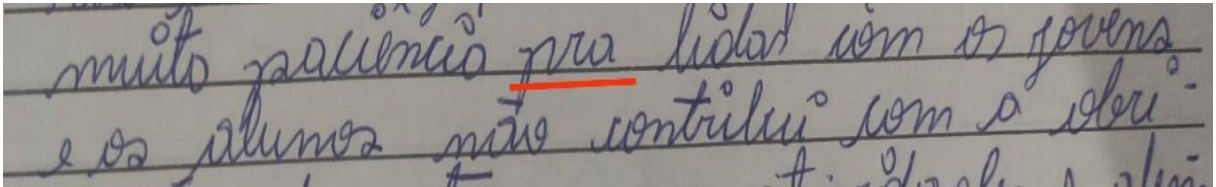 muito paciência pra lidar com os jovens
e os alunos não contribui com a obri-